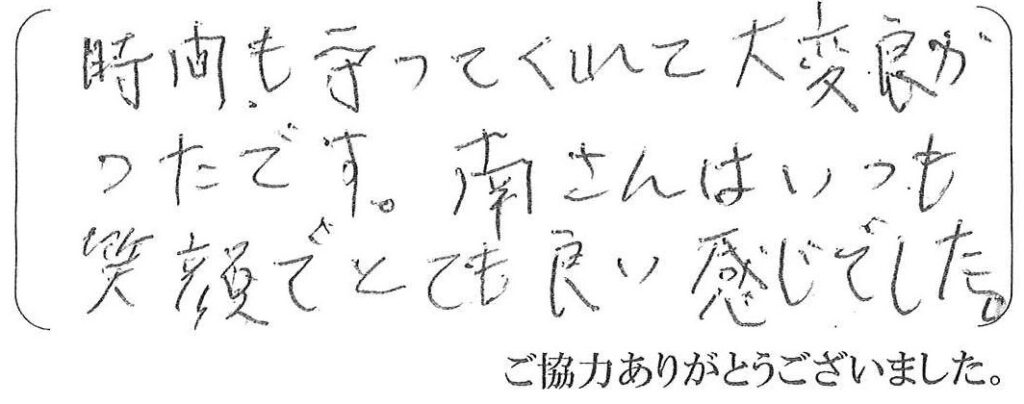 時間も守ってくれて大変良か
ったです。南さんはいつも
笑顔でとても良い感じでした。
ご協力ありがとうございました。